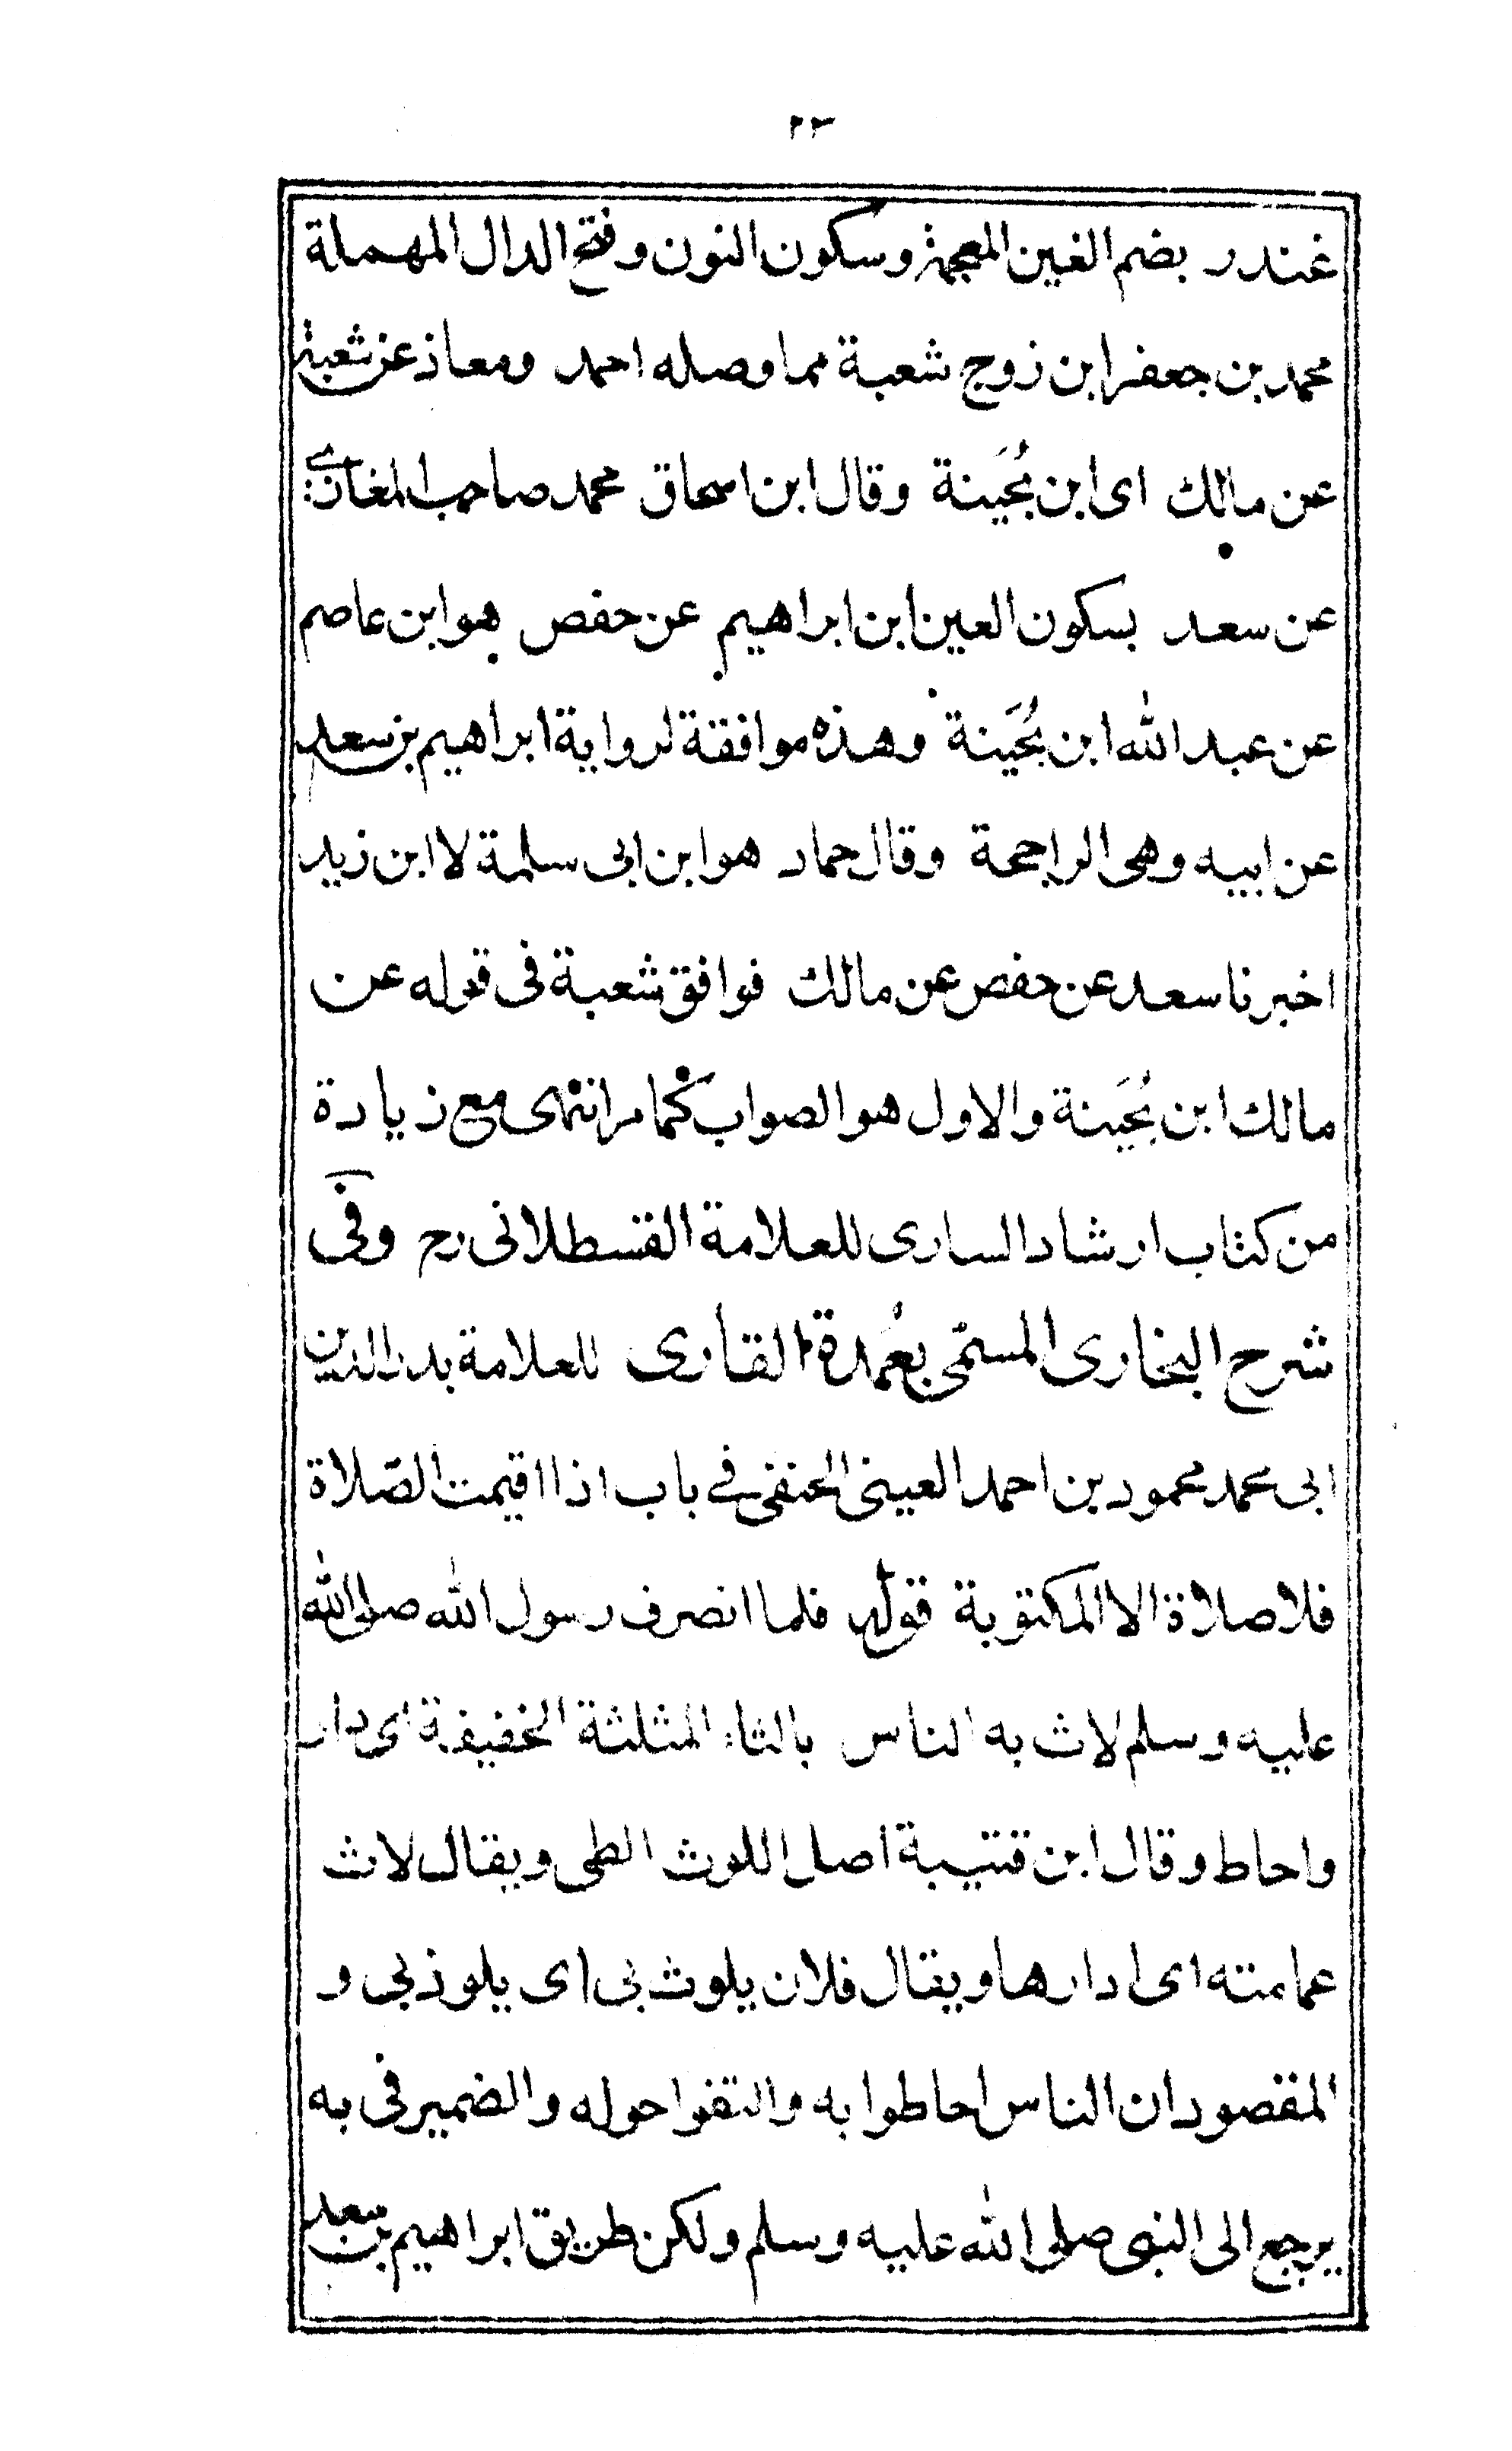 ٢٣
غندر بضم الغين المعجمة وسكون النون وفتح الدال المهملة
محمد بن جعفر ابن زوج شعبة مما وصله احمد ومعاذ عن شعبة
عن مالك اى ابن بُحَينة وقال ابن اسحاق محمد صاحب المغازے
عن سعد بسكون العين ابن ابراهيم عن حفص هو ابن عاصم
عن عبد الله ابن بُحَينة وهذه موافقة لرواية ابراهيم بن سعد
عن ابيه وهى الراجحة وقال حماد هو ابن ابى سلمة لا ابن زيد
اخبرنا سعد عن حفص عن مالك فوافق شعبة فى قوله عن
مالك ابن بُحَينة والاول هو الصواب كما مر انتهى مع زيادة
من كتاب ارشاد السارى للعلامة القسطلانى رح وفى
شرح البخارى المسمّى بعُمدة القارى للعلامة بدر الدين
ابى محمد محمود بن احمد العينى الحنفى فے باب اذا اقيمت الصّلاة
فلا صلاة الا المكتوبة قوله فلما انصرف رسول الله صلى الله
عليه وسلم لاث به الناس بالثاء المثلثة الخفيفة اى دار
واحاط وقال ابن قتيبة اصل اللوث الطى ويقال لاث
عمامته اى ادارها ويقال فلان يلوث بى اى يلوذ بى و
المقصود ان الناس احاطوا به والتفوا حوله والضمير فى به
يرجع الى النبى صلى الله عليه وسلم ولكن طريق ابراهيم بن سعد